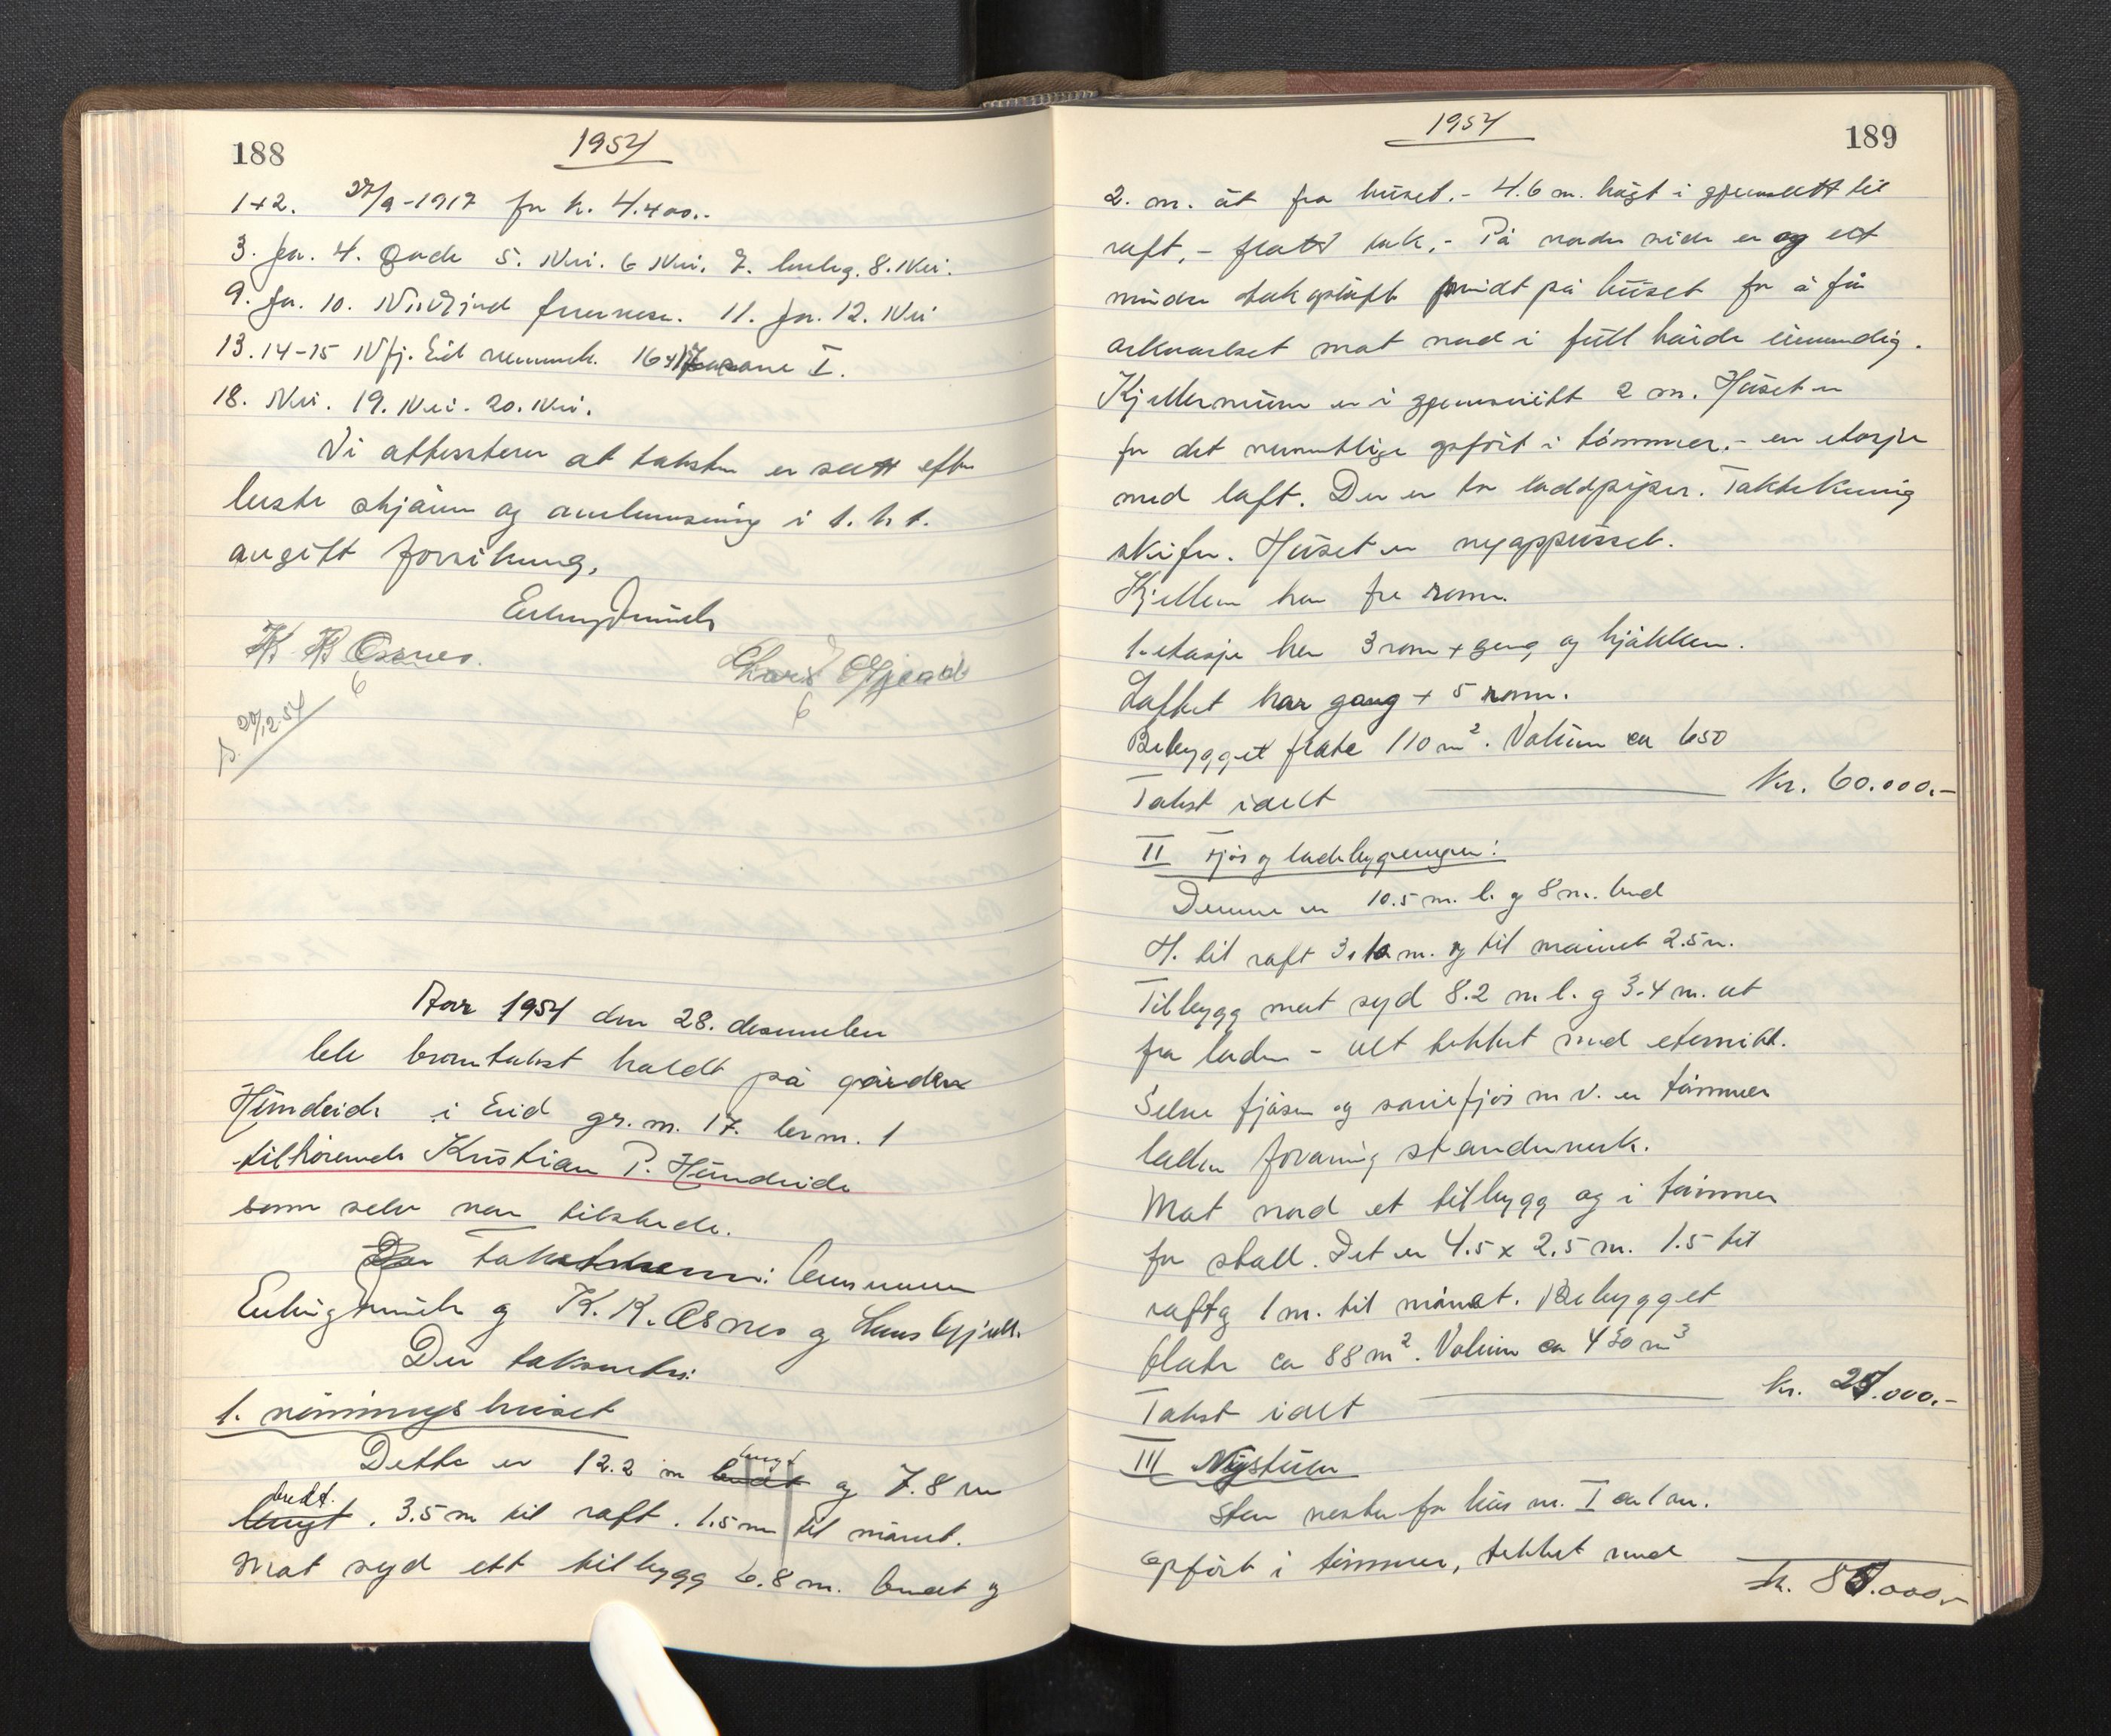 188
1954
1+2. 27/9-1917 for kr. 4.400.-
3. Ja. 4. Gode 5. Nei. 6 Nei. 7. 8. Nei.
9. Ja. 10. 11. Ja. 12. Nei
13. 14-15 Nfj. Eid 16+17 I.
18. Nei. 19. Nei. 20. Nei.
Vi attesterer at taksten er satt efter
beste skjønn og i t. h. t.
avgitt forsikring.
K. K. Osnes.
Lars Gjerde
6
6
29/12.54
Aar 1954 den 28. desember
ble branntakst holdt på gården
Hundeide i Eid gr. nr. 17. br.nr. 1
tilhørende Kristian P. Hundeide
som selv var tilstede.
takstmenn: lensmann
Erling og K. K. Osnes og Lars Gjerde.
Der taksertes:
1. våningshuset
Dette er 12.2 m langt og 7.8 m
bredt. 3.5 m til raft. 1.5 m til mønet.
Mot syd ett tilbygg 6.8 m. bredt og
1954
189
2. m. ut fra huset. - 4.6 m. høgt i gjennsnitt til
raft, - flatt tak. - På nordre side er og ett
mindre takopløft midt på huset for å få
mot nord i full høide innvendig.
Kjellermuren er i gjennsnitt 2 m. Huset er
for det vesentlige opført i tømmer. - en etasje
med loft. Der er to loddpiper. Taktekning
skifer. Huset er nyoppusset.
Kjelleren har fire rom.
1. etasje har 3 rom + gang og kjøkken.
Loftet har gang + 5 rom.
Bebygget flate 110 m². Volum ca 650
Takst ialt kr. 60.000.-
II Fjøs og ladebygningen:
Denne er 10.5 m. l. og 8 m. bred
H. til raft 3,10 m. og til mønet 2.5 m.
Tilbygg mot syd 8.2 m l. og 3.4 m. ut
fra laden - alt tekket med eternitt.
Selve fjøsen og sauefjøs m v. er tømmer
laden forøvrig standverk.
Mot nord et tilbygg og i tømmer
for stall. Det er 4.5 x 2.5 m. 1.5 til
raft og 1 m. til mønet. Bebygget
flate ca 88 m². Volum ca 430 m³
Takst ialt kr. 25.000.-
III Nystuen
Sten vestenfor hus nr. I ca 1 m.
opført i tømmer, tekket med
kr. 85.000.-